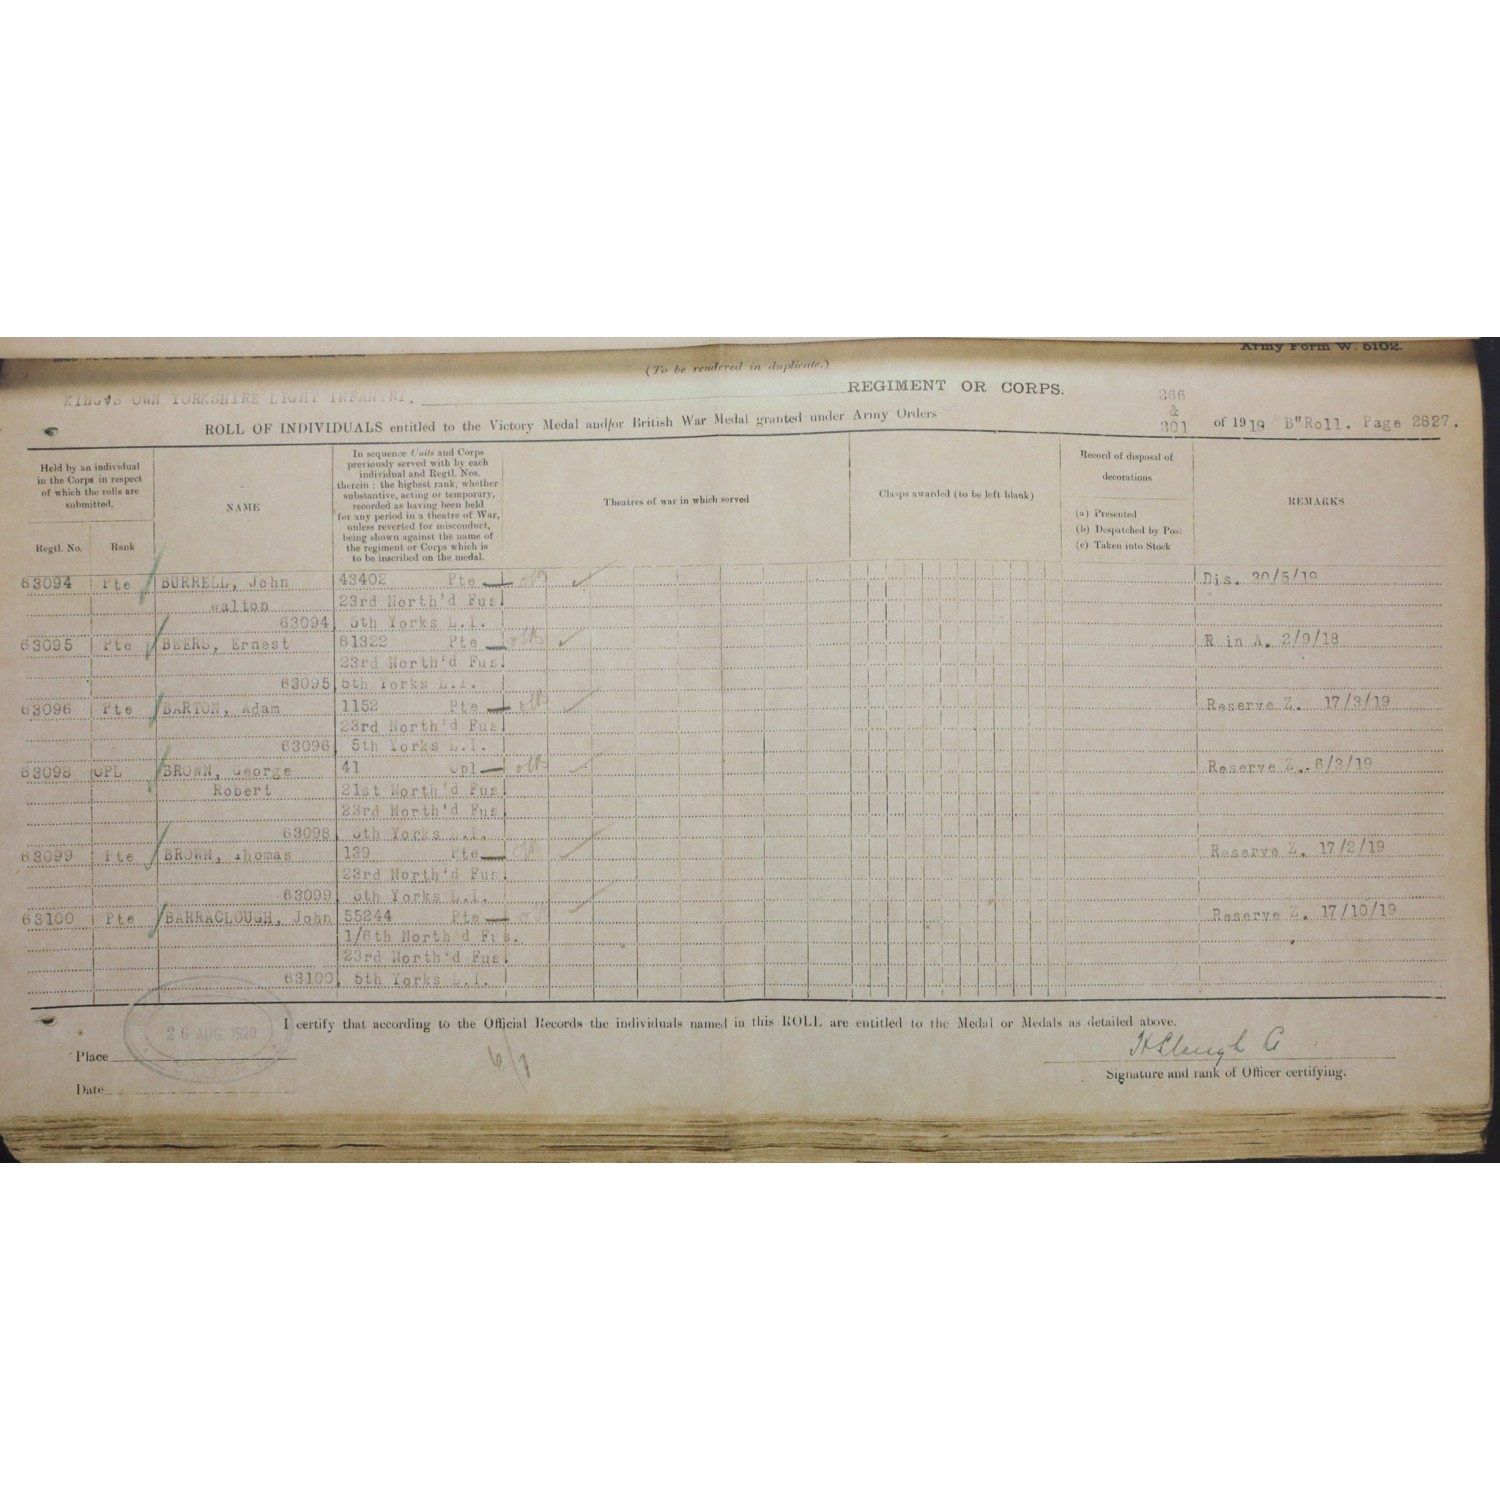 Army Form W. 5102.
(To be rendered in duplicate.)
KING'S OWN YORKSHIRE LIGHT INFANTRY. REGIMENT OR CORPS.
ROLL OF INDIVIDUALS entitled to the Victory Medal and/or British War Medal granted under Army Orders 266 & 301 of 1919 B"Roll. Page 2827.
Held by an individual
in the Corps in respect
of which the rolls are
submitted.
Regtl. No. Rank
NAME
In sequence Units and Corps
previously served with by each
individual and Regtl. Nos.
therein ; the highest rank, whether
substantive, acting or temporary,
recorded as having been held
for any period in a theatre of War,
unless reverted for misconduct,
being shown against the name of
the regiment or Corps which is
to be inscribed on the medal.
Theatres of war in which served
Clasps awarded (to be left blank)
Record of disposal of
decorations
(a) Presented
(b) Despatched by Post
(c) Taken into Stock
REMARKS
63094 Pte BURRELL, John 43402 Pte Dis. 30/5/19
Walton 23rd North'd Fus
63094 5th Yorks L.I.
63095 Pte BEERS, Ernest 61322 Pte R in A. 2/9/18
23rd North'd Fus
63095 5th Yorks L.I.
63096 Pte BARTON, Adam 1152 Pte Reserve Z. 17/3/19
23rd North'd Fus
63096 5th Yorks L.I.
63098 CPL BROWN, George 41 Cpl Reserve Z. 6/3/19
Robert 21st North'd Fus
23rd North'd Fus
63098 5th Yorks L.I.
63099 Pte BROWN, Thomas 139 Pte Reserve Z. 17/2/19
23rd North'd Fus
63099 5th Yorks L.I.
63100 Pte BARRACLOUGH, John 55244 Pte Reserve Z. 17/10/19
1/6th North'd Fus.
23rd North'd Fus
63100 5th Yorks L.I.
I certify that according to the Official Records the individuals named in this ROLL are entitled to the Medal or Medals as detailed above.
26 AUG 1920
Place
6/7
Signature and rank of Officer certifying.
Date